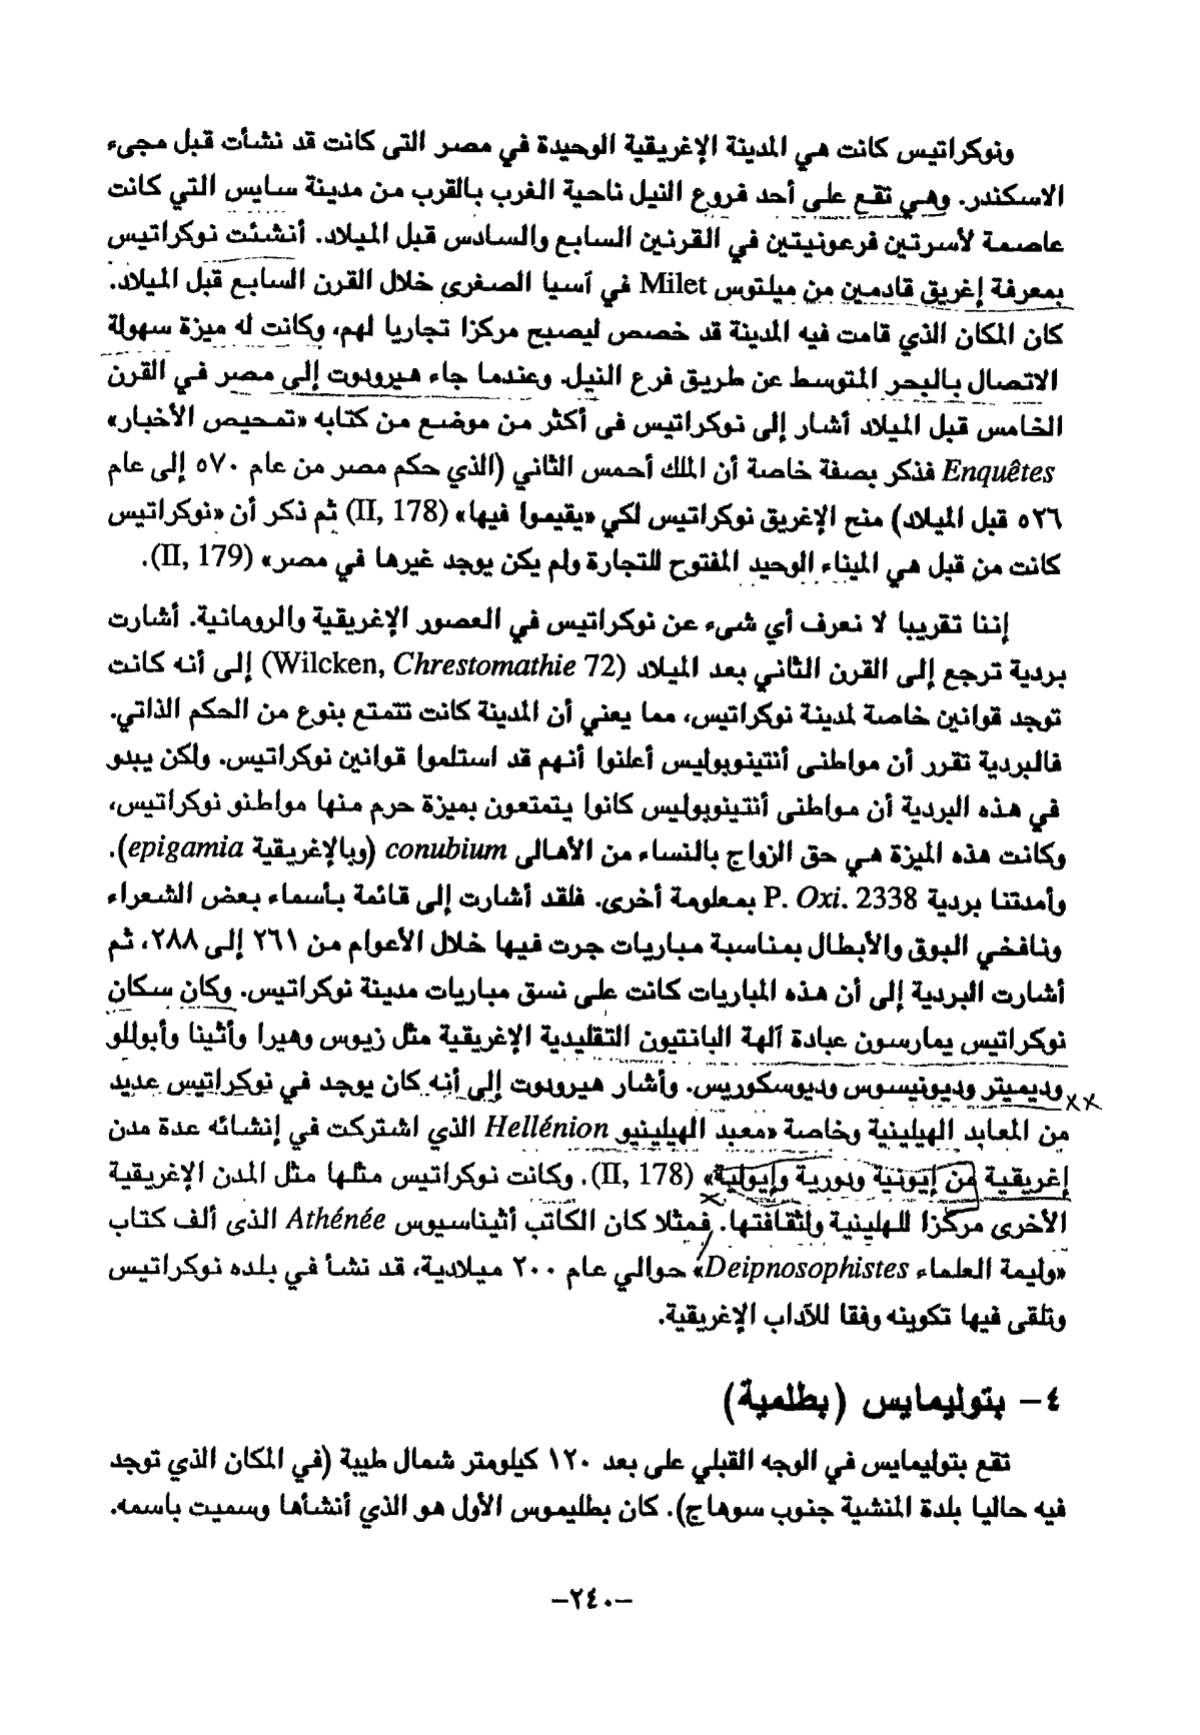 ونوكراتيس كانت هي المدينة الإغريقية الوحيدة في مصر التى كانت قد نشأت قبل مجىء
الاسكندر. وهي تقع على أحد فروع النيل ناحية الغرب بالقرب من مدينة سايس التي كانت
عاصمة لأسرتين فرعونيتين في القرنين السابع والسادس قبل الميلاد. أنشئت نوكراتيس
بمعرفة إغريق قادمين من ميلتوس Milet في آسيا الصغرى خلال القرن السابع قبل الميلاد.
كان المكان الذي قامت فيه المدينة قد خصص ليصبح مركزا تجاريا لهم، وكانت له ميزة سهولة
الاتصال بالبحر المتوسط عن طريق فرع النيل. وعندما جاء هيرودوت إلى مصر في القرن
الخامس قبل الميلاد أشار إلى نوكراتيس فى أكثر من موضع من كتابه «تمحيص الأخبار»
Enquêtes فذكر بصفة خاصة أن الملك أحمس الثاني (الذي حكم مصر من عام ٥٧٠ إلى عام
٥٢٦ قبل الميلاد) منح الإغريق نوكراتيس لكي «يقيموا فيها» (II, 178) ثم ذكر أن «نوكراتيس
كانت من قبل هي الميناء الوحيد المفتوح للتجارة ولم يكن يوجد غيرها في مصر» (II, 179).
إننا تقريبا لا نعرف أي شىء عن نوكراتيس في العصور الإغريقية والرومانية. أشارت
بردية ترجع إلى القرن الثاني بعد الميلاد (Wilcken, Chrestomathie 72) إلى أنه كانت
توجد قوانين خاصة لمدينة نوكراتيس، مما يعني أن المدينة كانت تتمتع بنوع من الحكم الذاتي.
فالبردية تقرر أن مواطنى أنتينوبوليس أعلنوا أنهم قد استلموا قوانين نوكراتيس. ولكن يبدو
في هذه البردية أن مواطنى أنتينوبوليس كانوا يتمتعون بميزة حرم منها مواطنو نوكراتيس،
وكانت هذه الميزة هي حق الزواج بالنساء من الأهالى conubium (وبالإغريقية epigamia).
وأمدتنا بردية P. Oxi. 2338 بمعلومة أخرى. فلقد أشارت إلى قائمة بأسماء بعض الشعراء
ونافخي البوق والأبطال بمناسبة مباريات جرت فيها خلال الأعوام من ٢٦١ إلى ٢٨٨، ثم
أشارت البردية إلى أن هذه المباريات كانت على نسق مباريات مدينة نوكراتيس. وكان سكان
نوكراتيس يمارسون عبادة آلهة البانتيون التقليدية الإغريقية مثل زيوس وهيرا وأثينا وأبوللو
وديميتر وديونيسوس وديوسكوريس. وأشار هيرودوت إلى أنه كان يوجد في نوكراتيس عديد xx
من المعابد الهيلينية وخاصة «معبد الهيلينيو Hellénion الذي اشتركت في إنشائه عدة مدن
إغريقية من إيونية ودورية وإيولية» (II, 178). وكانت نوكراتيس مثلها مثل المدن الإغريقية
الأخرى مركزا للهلينية ولثقافتها. فمثلا كان الكاتب أثيناسيوس Athénée الذى ألف كتاب
«وليمة العلماء Deipnosophistes» حوالي عام ٢٠٠ ميلادية، قد نشأ في بلده نوكراتيس
وتلقى فيها تكوينه وفقا للآداب الإغريقية.
٤- بتوليمايس (بطلمية)
تقع بتوليمايس في الوجه القبلي على بعد ١٢٠ كيلومتر شمال طيبة (في المكان الذي توجد
فيه حاليا بلدة المنشية جنوب سوهاج). كان بطليموس الأول هو الذي أنشأها وسميت باسمه.
-٢٤٠-